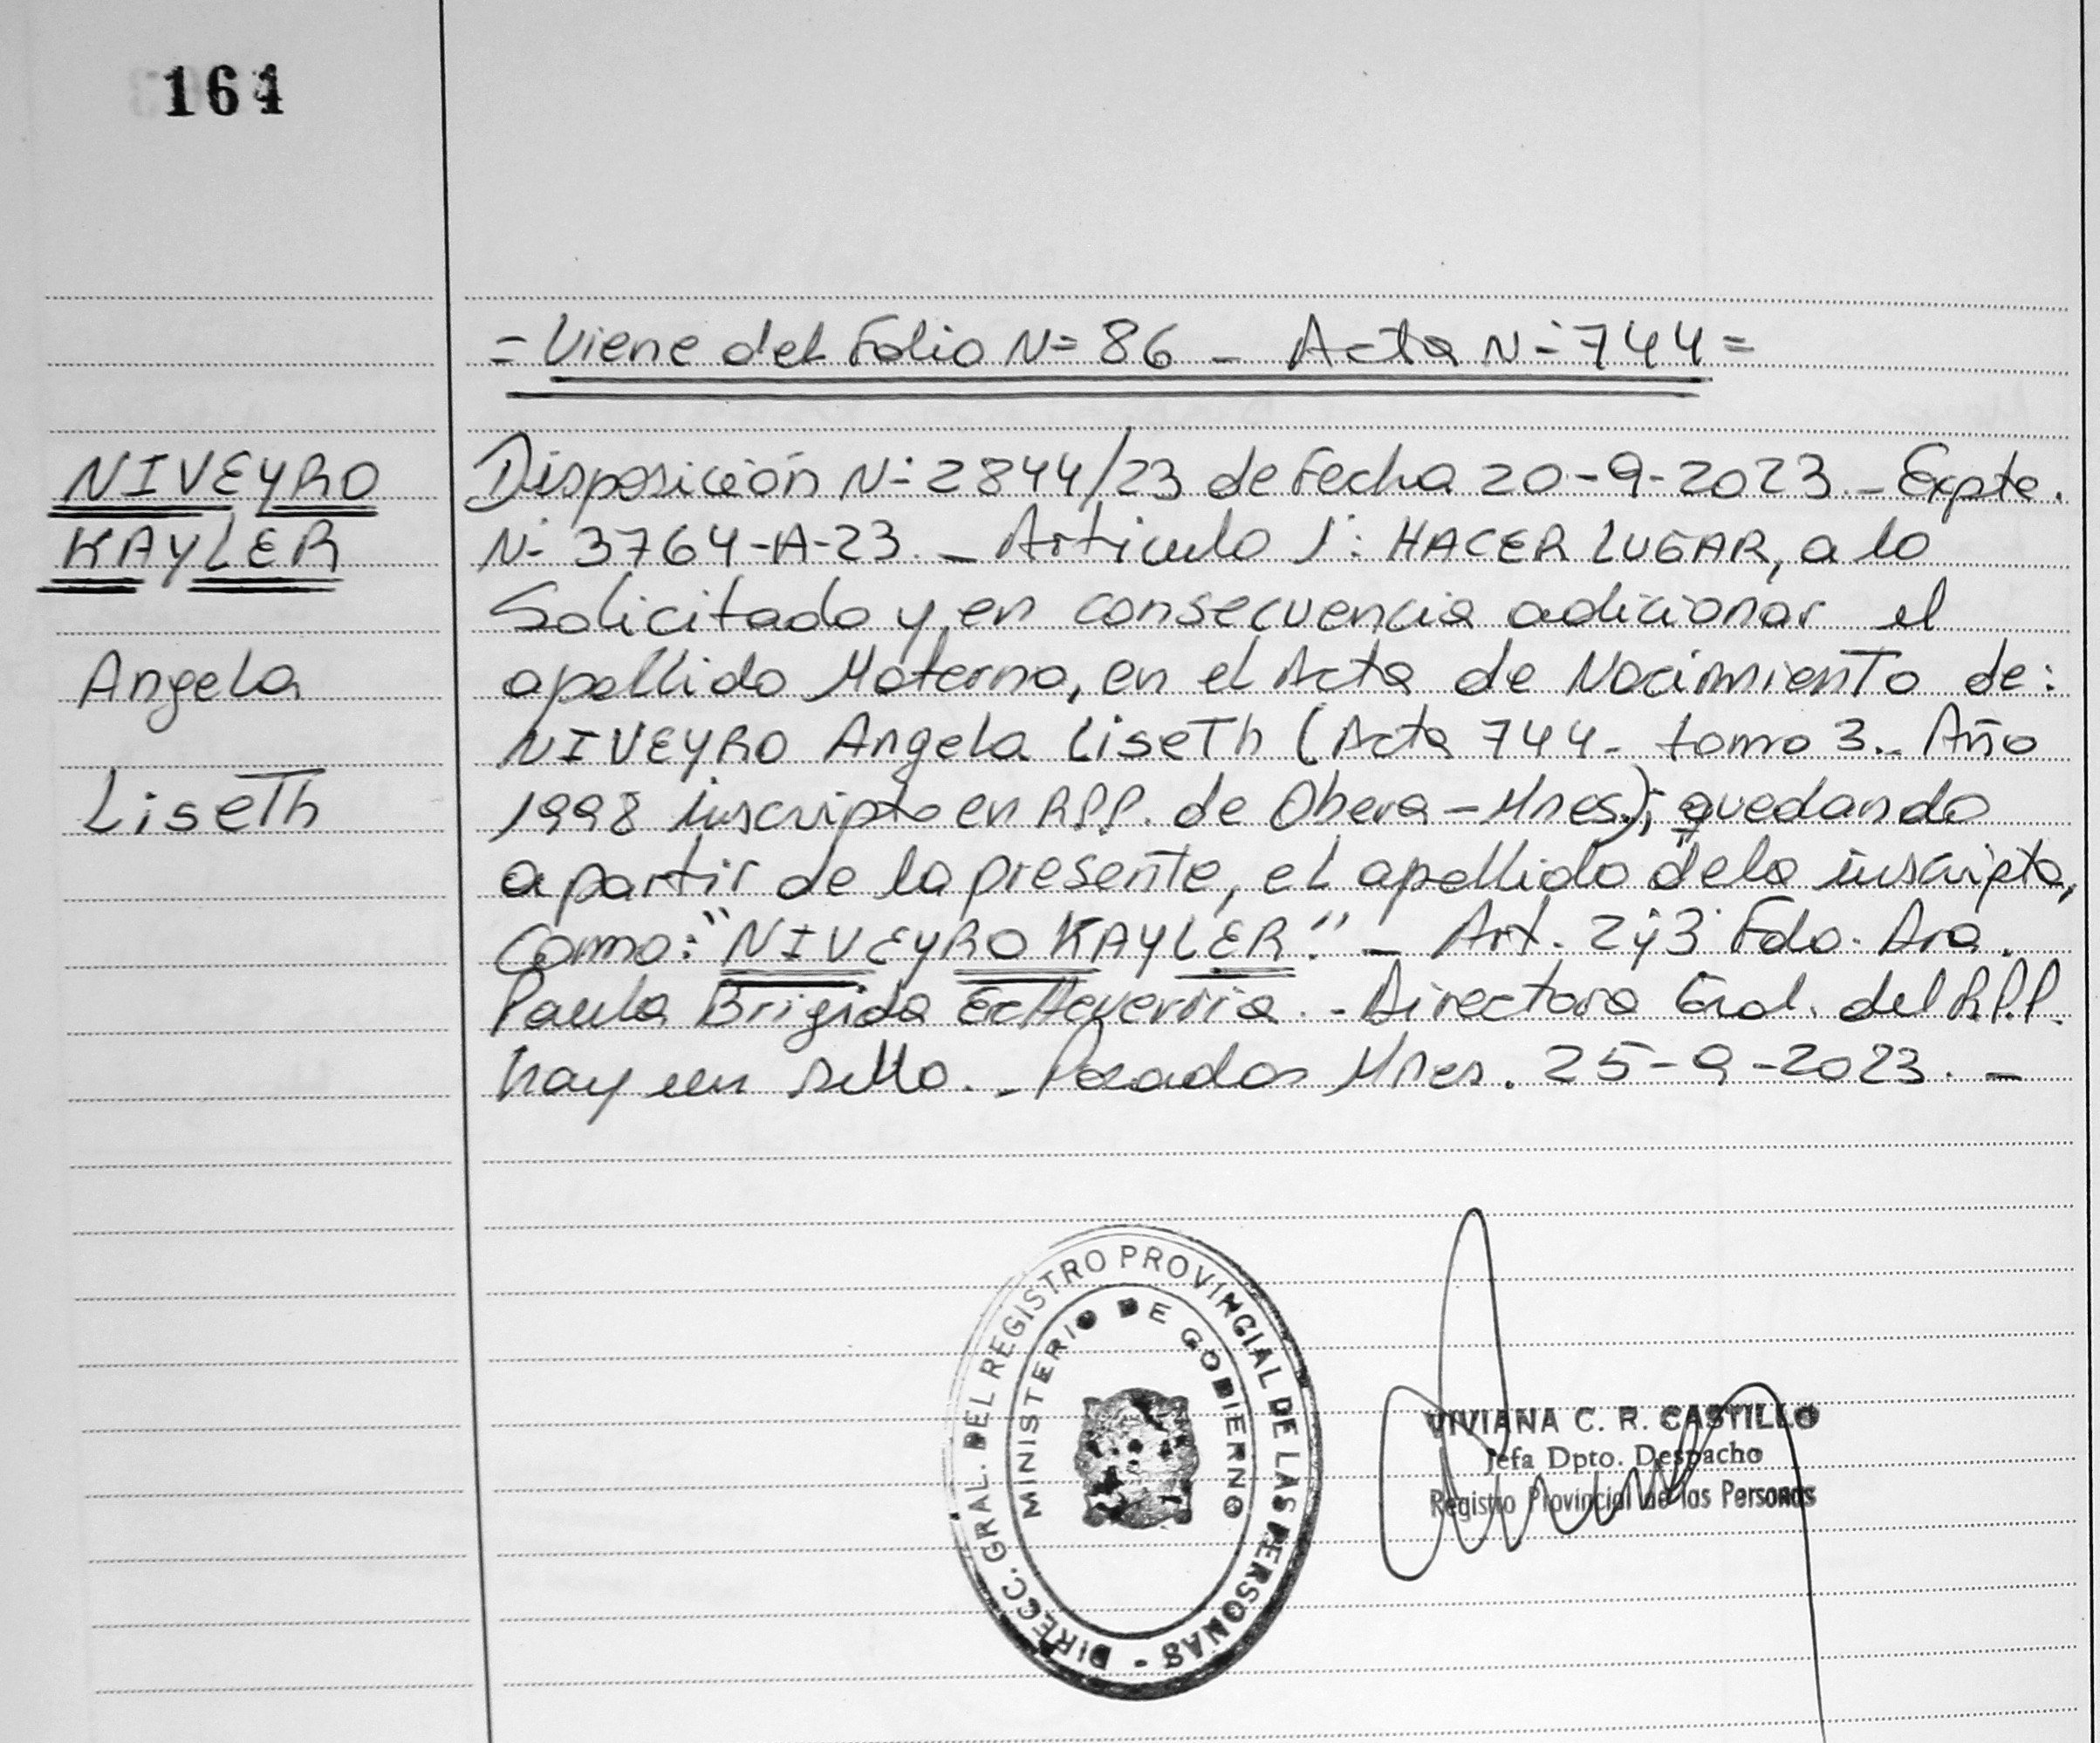 164
= Viene del Folio N= 86 - Acta N= 744 =
NIVEYRO
KAYLER
Angela
Liseth
Disposición N= 2844/23 de Fecha 20-9-2023.- Expte.
N- 3764-A-23.- Articulo 1: HACER LUGAR, a lo
Solicitado y, en consecuencia adicionar el
apellido Materno, en el Acta de Nacimiento de:
NIVEYRO Angela Liseth (Acta 744- tomo 3.- Año
1998 inscripto en R.P.P. de Obera - Mnes.); quedando
a partir de la presente, el apellido de la inscripta,
Como: "NIVEYRO KAYLER." - Art. 2 y 3 Fdo. Dra.
Paula Brigida Echeverria.- Directora Gral. del R.P.P.
hay un sello.- Posadas Mnes. 25-9-2023.-
DIRECC. GRAL. DEL REGISTRO PROVINCIAL DE LAS PERSONAS -
MINISTERIO DE GOBIERNO
VIVIANA C. R. CASTILLO
Jefa Dpto. Despacho
Registro Provincial de las Personas